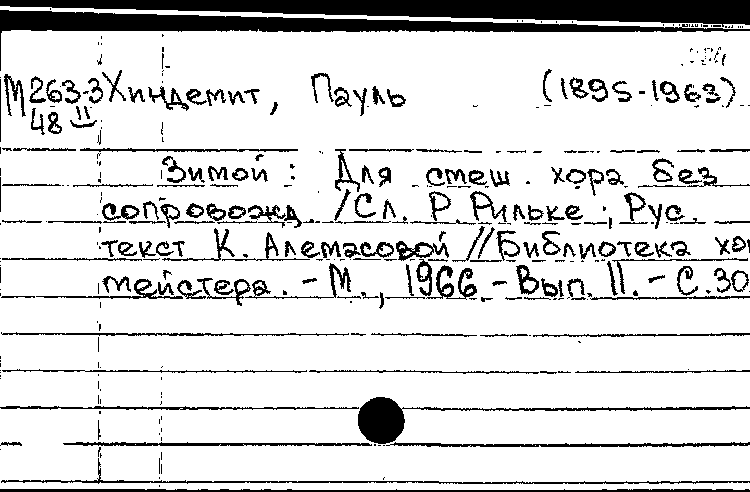 М263-3 Хиндемит, Пауль (1895-1963)
48 II
Зимой : Для смеш. хора без
сопровожд. /Сл. Р. Рильке ; Рус.
текст К. Алемасовой //Библиотека хор
мейстера. - М., 1966. - Вып. 11. - С. 30